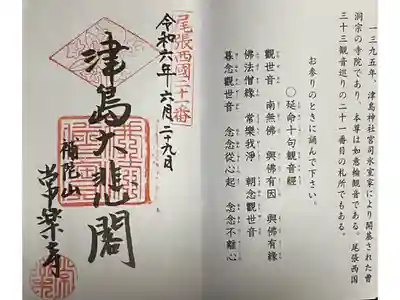 一三九五年、津島神社宮司氷室家により開基された曹
洞宗の寺院であり、本尊は如意輪観音である。尾張西国
三十三観音巡りの二十一番目の札所でもある。
お参りのときに誦んで下さい。
〇延命十句観音經
觀世音 南無佛 與佛有因 與佛有緣
佛法僧緣 常樂我淨 朝念觀世音
暮念觀世音 念念從心起 念念不離心
尾張西國二十一番
令和六年 六月二十九日
津島大悲閣
補陀山
常楽寺